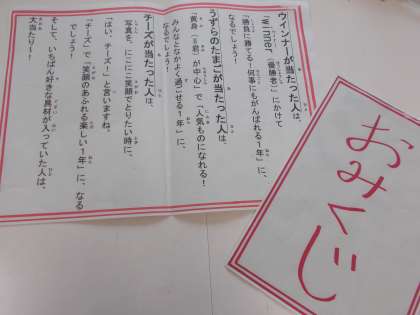 ウインナーが当たった人は、
「winner（優勝者）」にかけて
「勝負に勝てる！何事にもがんばれる１年」に、
なるでしょう！
うずらのたまごが当たった人は、
黄身（＝君）が中心」で「人気ものになれる！
みんなとなかよく過ごせる１年」に、
なるでしょう！
チーズが当たった人は、
写真を、にこにこ笑顔でとりたい時に、
「はい、チーズ！」と言いますね。
「チーズ」で「笑顔のあふれる楽しい１年」に、なる
でしょう！
そして、いちばん好きな具材が入っていた人は、
大当たり～！
おみくじ